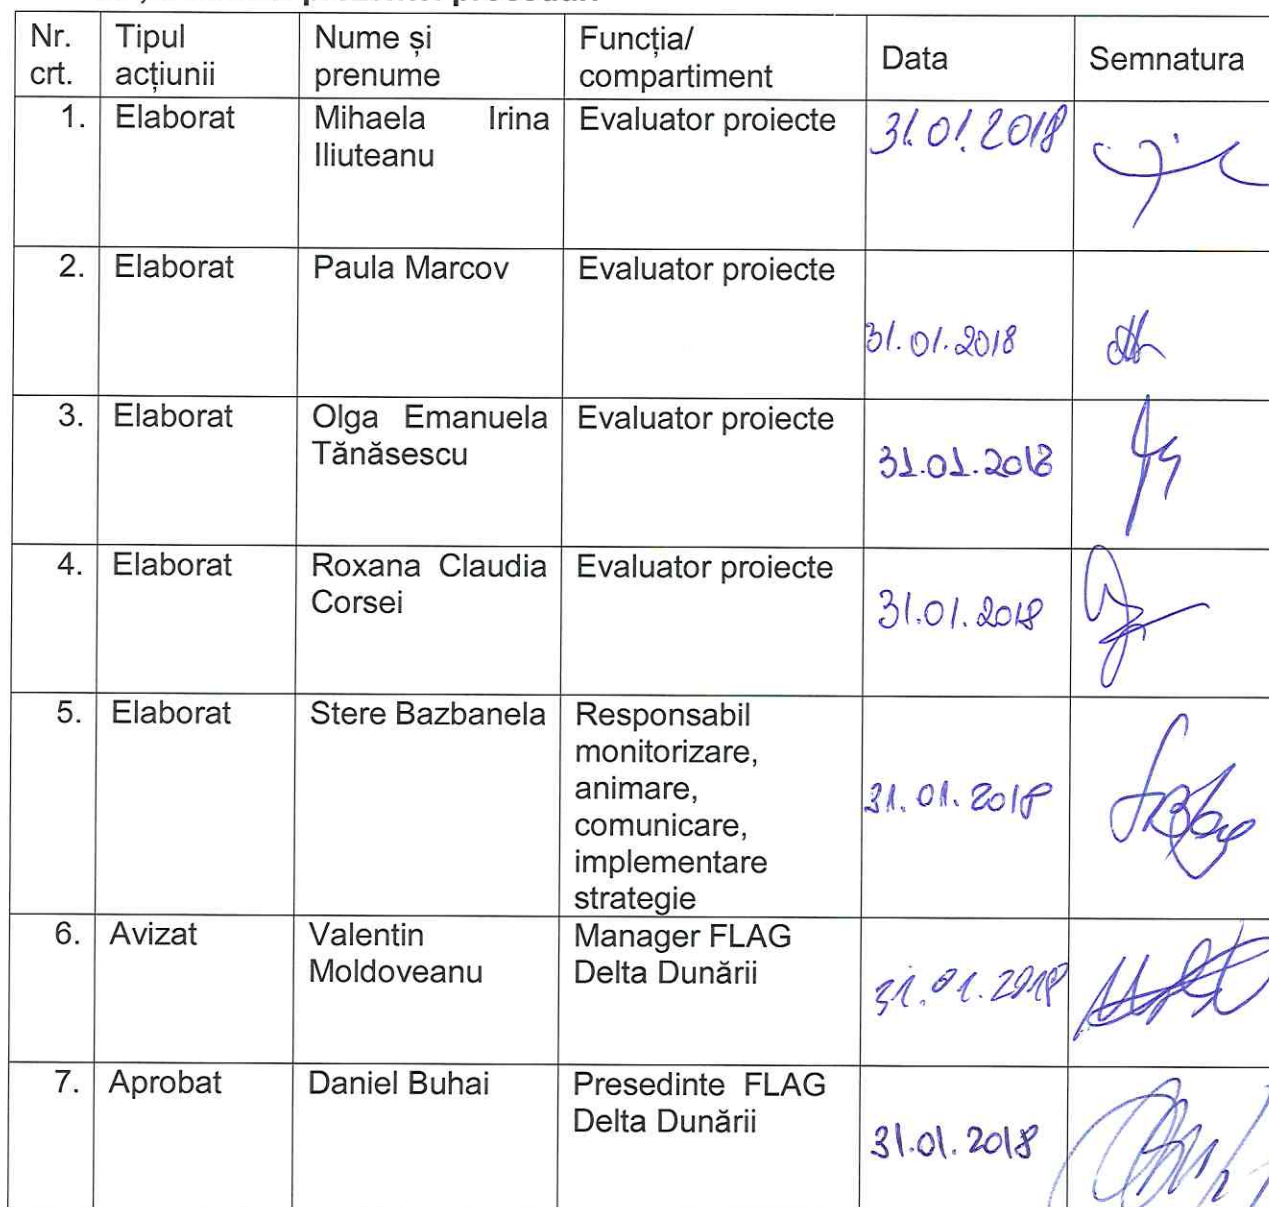 Nr. crt. Tipul acțiunii Nume și prenume Funcția/ compartiment Data Semnatura
1. Elaborat Mihaela Irina Iliuteanu Evaluator proiecte 31.01.2018
2. Elaborat Paula Marcov Evaluator proiecte 31.01.2018
3. Elaborat Olga Emanuela Tănăsescu Evaluator proiecte 31.01.2018
4. Elaborat Roxana Claudia Corsei Evaluator proiecte 31.01.2018
5. Elaborat Stere Bazbanela Responsabil monitorizare, animare, comunicare, implementare strategie 31.01.2018
6. Avizat Valentin Moldoveanu Manager FLAG Delta Dunării 31.01.2018
7. Aprobat Daniel Buhai Presedinte FLAG Delta Dunării 31.01.2018